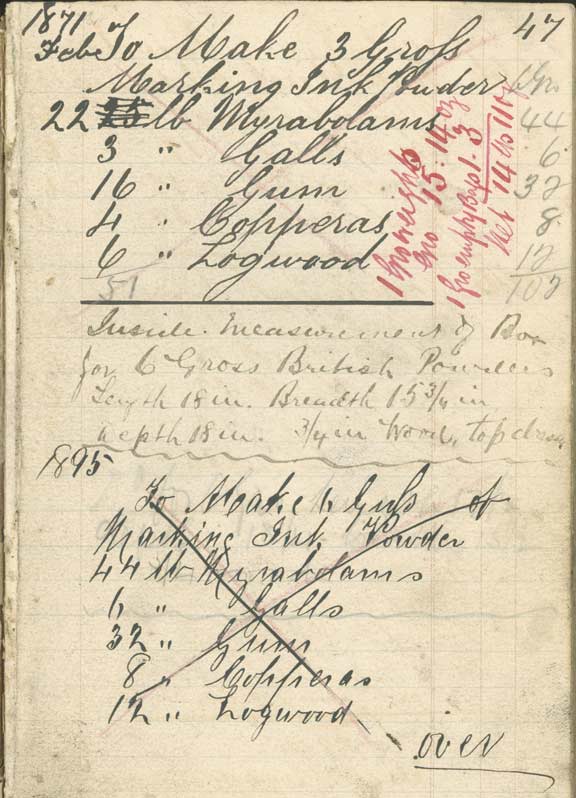 1871 47
Feb To Make 3 Gross of
Marking Ink Powder 6 Gro
22 lb Myrabolams 44
3 " Galls 6
16 " Gum 32
4 " Copperas 8
6 " Logwood 12
51 102
1 Gro weighs
Gro 15. 14 oz
1 Gro empty Bags 1. 3
Net 14 lb 11 oz
Inside. Measurement of Box
for 6 Gross British Powders
Length 18 in. Breadth 15 3/4 in
depth 18 in. 3/4 in Wood, top
1895
To Make 6 Gross of
Marking Ink Powder
44 lb Myrabolams
6 " Galls
32 " Gum
8 " Copperas
12 " Logwood
over